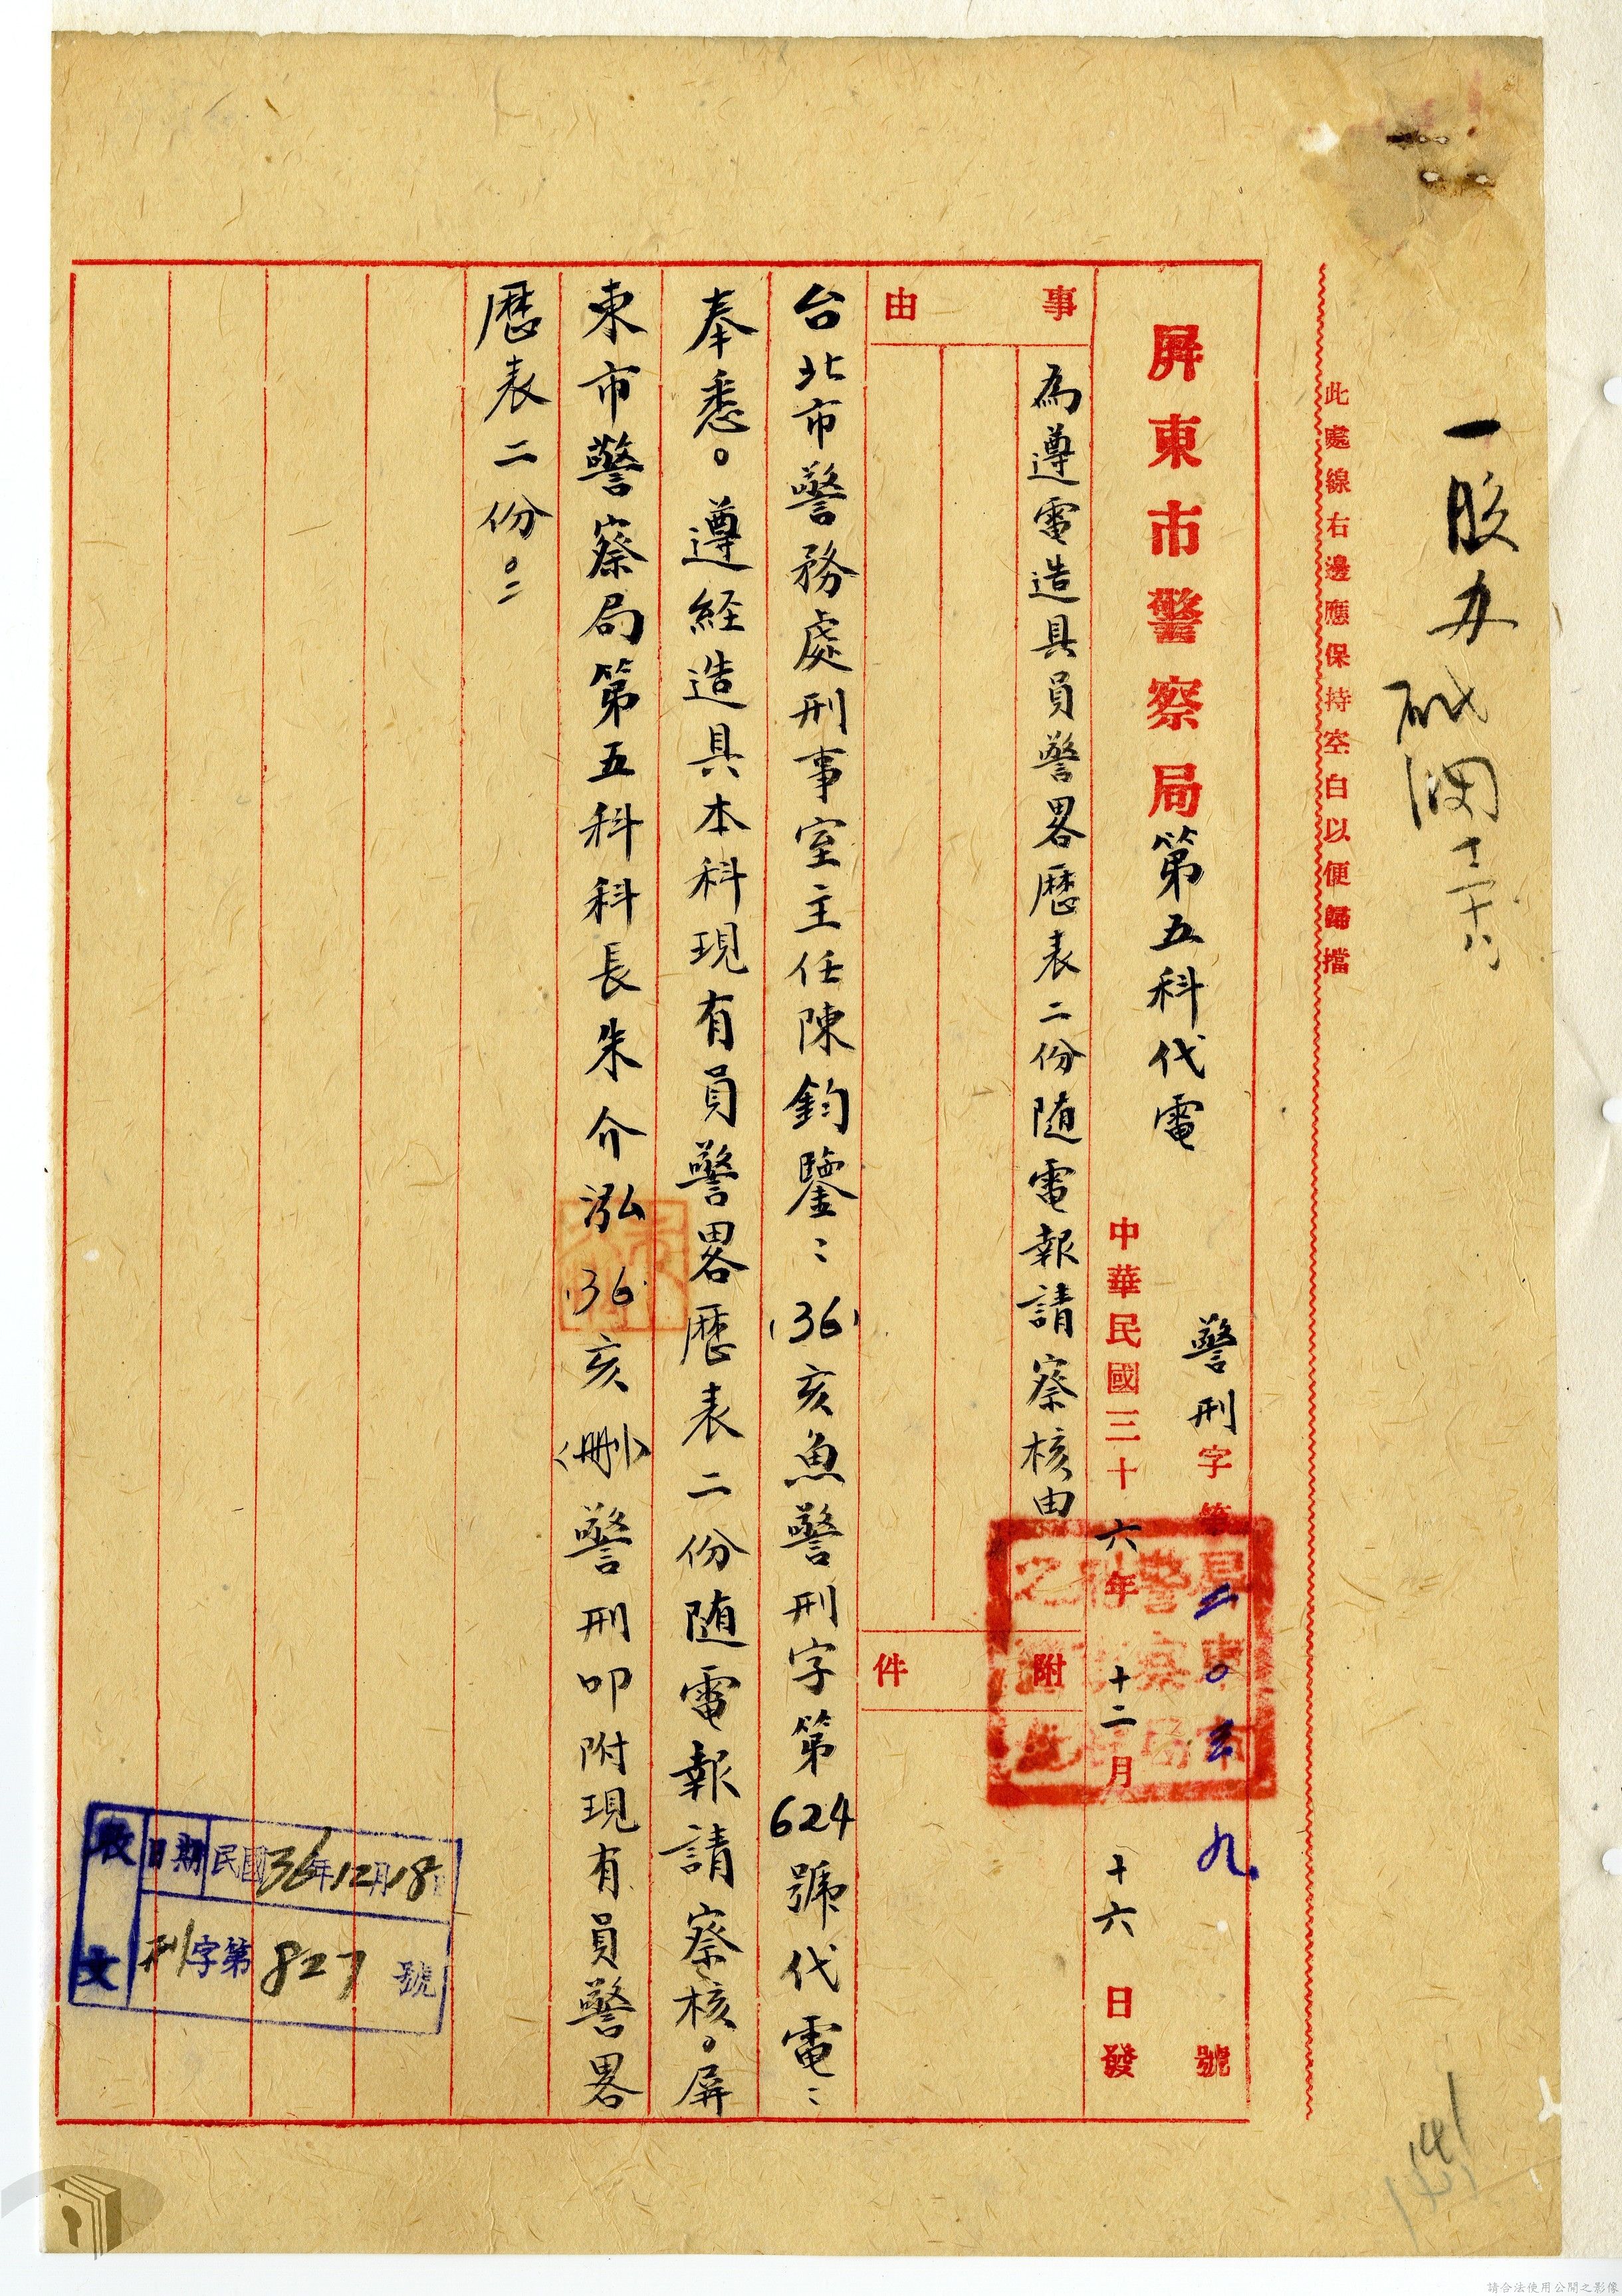 一股办
十二、十八
此處線右邊應保持空白以便歸擋
屏東市警察局第五科代電
警刑字第二〇三九號
中華民國三十六年十二月十六日發
事由
為遵電造具員警畧歷表二份随電報請察核由
附件
台北市警務處刑事室主任陳鈞鑒：(36)亥魚警刑字第624號代電：
奉悉。遵経造具本科現有員警畧歷表二份随電報請察核。屏
東市警察局第五科科長朱介泓(36)亥(刪)警刑叩附現有員警畧
歷表二份。
屏東市
警察局
之
收文
日期 民國36年12月18日
刑字第827號
141
請合法使用公開之影像